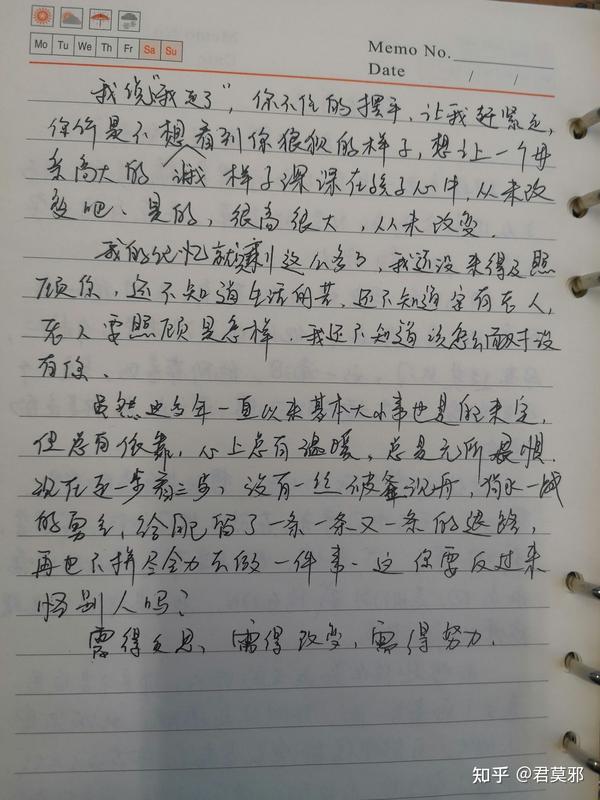 Mo Tu We Th Fr Sa Su
Memo No.
Date / /
我说"我走了", 你不住的摆手, 让我赶紧走,
你你是不想看到你狼狈的样子, 想让一个母
亲高大的 样子深深在孩子心中, 从来改
变吧、是的, 很高很大, 从未改变.
我的记忆就剩这么多了, 我还没来得及照
顾你, 还不知道生活的苦, 还不知道家有老人,
老人要照顾是怎样, 我还不知道该怎么面对没
有你、
虽然这多年一直以来基本大小事也是我来定,
但总有依靠, 心上总有温暖, 总是无所畏惧.
现在走一步看三步, 没有一丝破釜沉舟, 背水一战
的勇气, 给自己留了一条一条又一条的退路,
再也不拼尽全力去做一件事. 这你要反过来
怪别人吗?
需得反思、需得改变, 需得努力.
知乎 @君莫邪